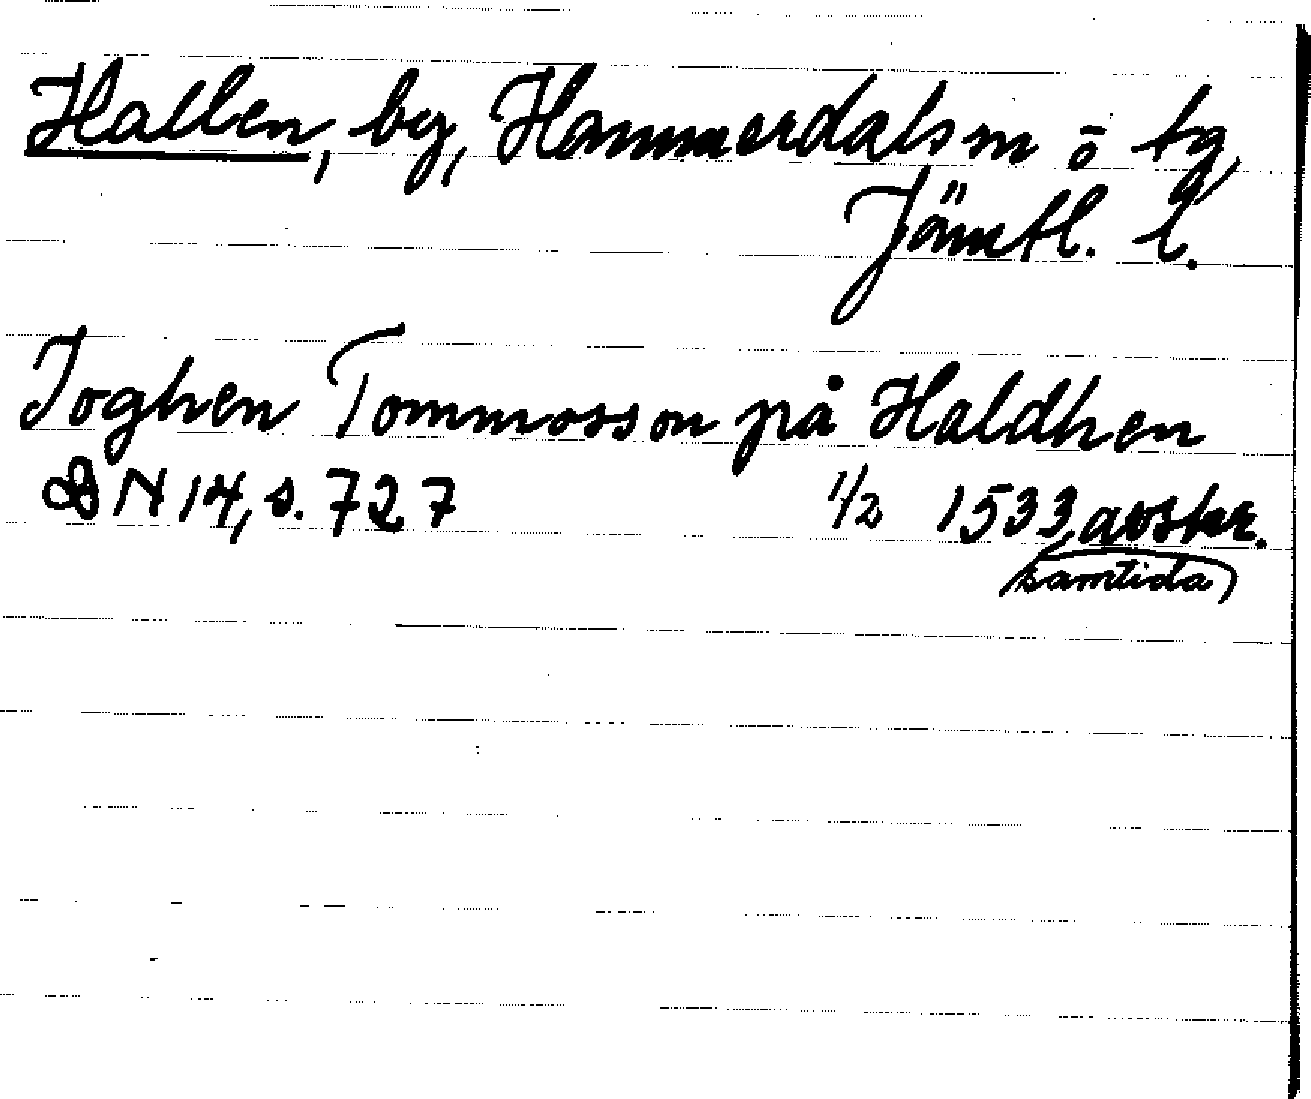 Hallen, by, Hammerdals sn o tg,
Jämtl. l.
Joghen Tommosson på Haldhen
DN 14, s. 727 1/2 1533, avskr.
(samtida)